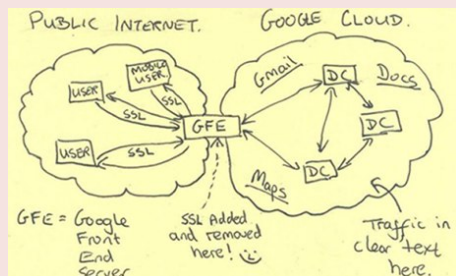 PUBLIC INTERNET.
GOOGLE CLOUD.
MOBILE
USER
USER
SSL
SSL
GFE
USER
SSL
Gmail
DC
Docs
DC
DC
Maps
GFE = Google
Front
End
Server
SSL Added
and removed
here!
Traffic in
clear text
here.